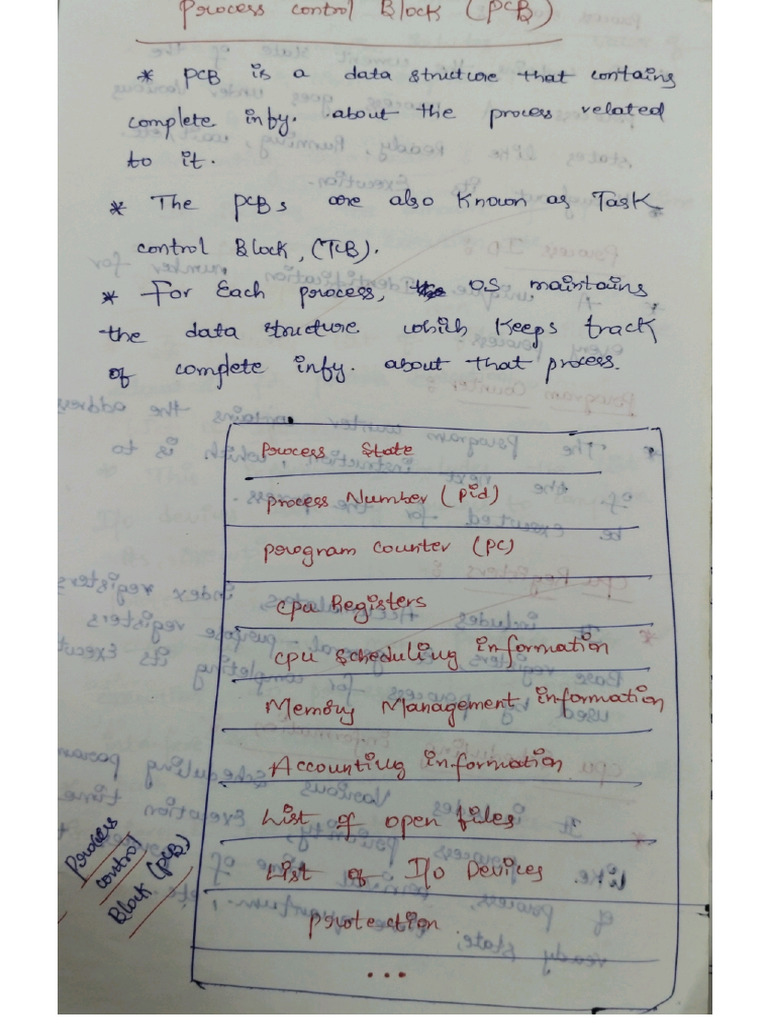 Process control Block (PCB)
* PCB is a data structure that contains
complete infy. about the process related
to it.
* The PCBs are also known as Task
control Block, (TCB).
* For Each process, the OS maintains
the data structure which keeps track
of complete infy. about that process.
Process State
process Number (pid)
program counter (PC)
cpu Registers
cpu scheduling information
Memory Management information
Accounting information
List of open files
List of I/o Devices
protection
...
Process
control
Block (PCB)